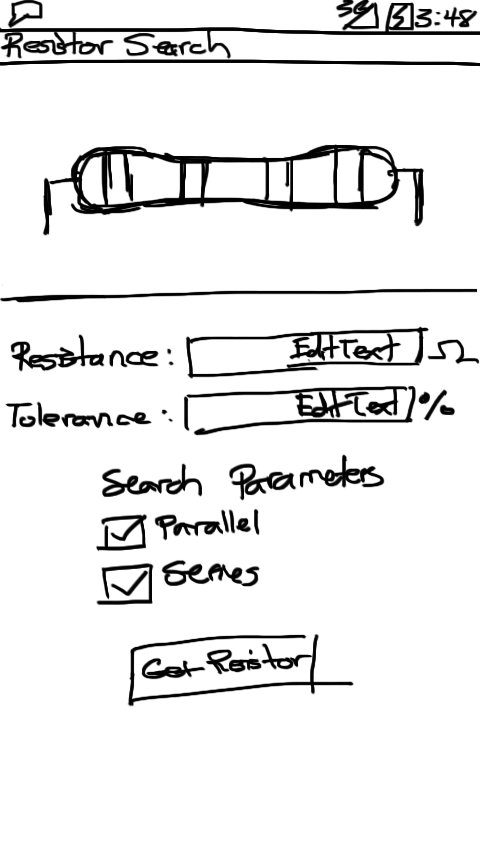 3G 3:48
Resistor Search
Resistance: EditText Ω
Tolerance: EditText %
Search Parameters
Parallel
Series
Get Resistor